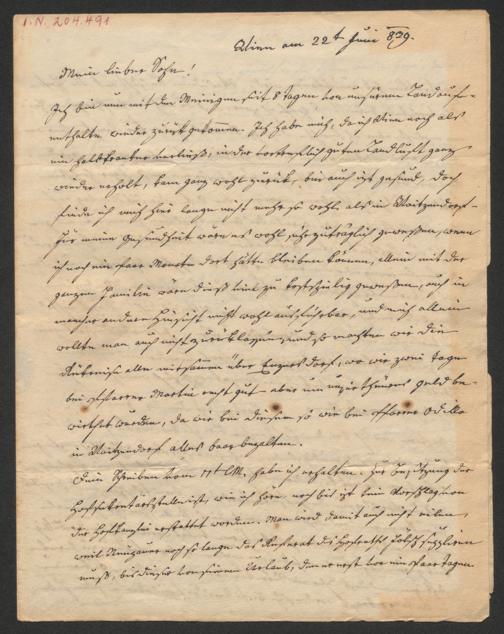 I.N. 204.491
Wien am 22t Juni 839.
Mein lieber Sohn!
Ich bin nun mit den Meinigen seit 8 Tagen von unserem Landauf-
enthalte wieder zurück gekommen. Ich habe mich, da ich Wien noch als
ein halbkranker verließ, in der vortrefflich guten Landluft ganz
wieder erholt, kam ganz wohl zurük, bin auch itzt gesund, doch
finde ich mich hier lange nicht mehr so wohl als in Waitzendorf.
Für meine Gesundheit wäre es wohl sehr zuträglich gewesen, wenn
ich noch ein paar Monate dort hätte bleiben können, allein mit der
ganzen Familie wäre dieß viel zu kostspielig gewesen, auch in
mancher anderer Hinsicht nicht wohl ausführbar, und mich allein
wollte man auch nicht zurücklassen, und so machten wir die
Rükreise alle mitsammen über Enzersdorf, wo wir zwei Tage
bei Pfarrer Martin recht gut aber um unser theueres Geld be-
wirthet wurden, da wir bei diesem so wie bei Pfarrer Odillo
in Waitzendorf alles baar bezahlten.
Dein Schreiben vom 17t habe ich erhalten. Zur Besetzung der
Hofsekretärstelle ist, wie ich höre noch bis itzt kein Vorschlag von
der Hofkanzlei erstattet worden. Man wird damit auch nicht eilen,
weil noch so lange das Referat des Hofraths suppliren
muß, bis dieser von seinem Urlaub, den er erst vor ein paar Tagen